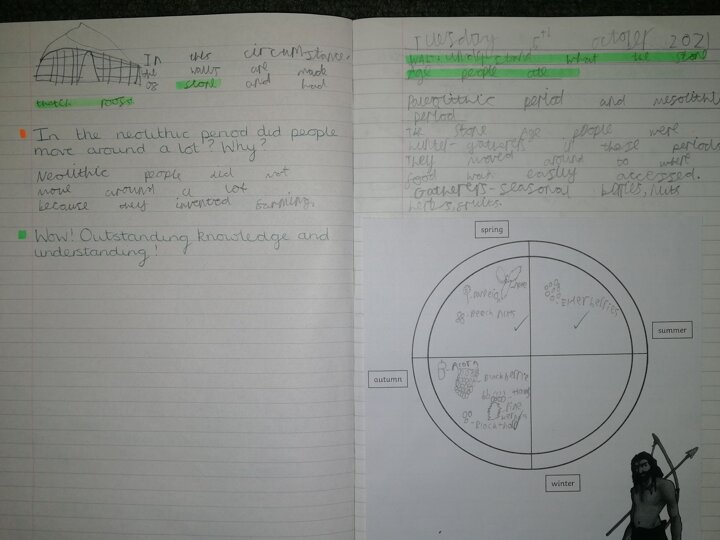 In this circumstance
the walls are made
of stone and had
thatch roofs
In the neolithic period did people
move around a lot? Why?
Neolithic people did not
move around a lot
because they invented farming.
Wow! Outstanding knowledge and
understanding!
Tuesday 5th october 2021
what the stone
age people ate
Paleolithic period and mesolithic
period
The stone age people were
hunter-gatherers in these periods
They moved around to where
food was easily accessed.
Gatherers-seasonal berries, nuts
herbs, fruits.
spring
Elderberries
Beach nuts
summer
autumn
Acorn
Blackberrie
Pine
winter